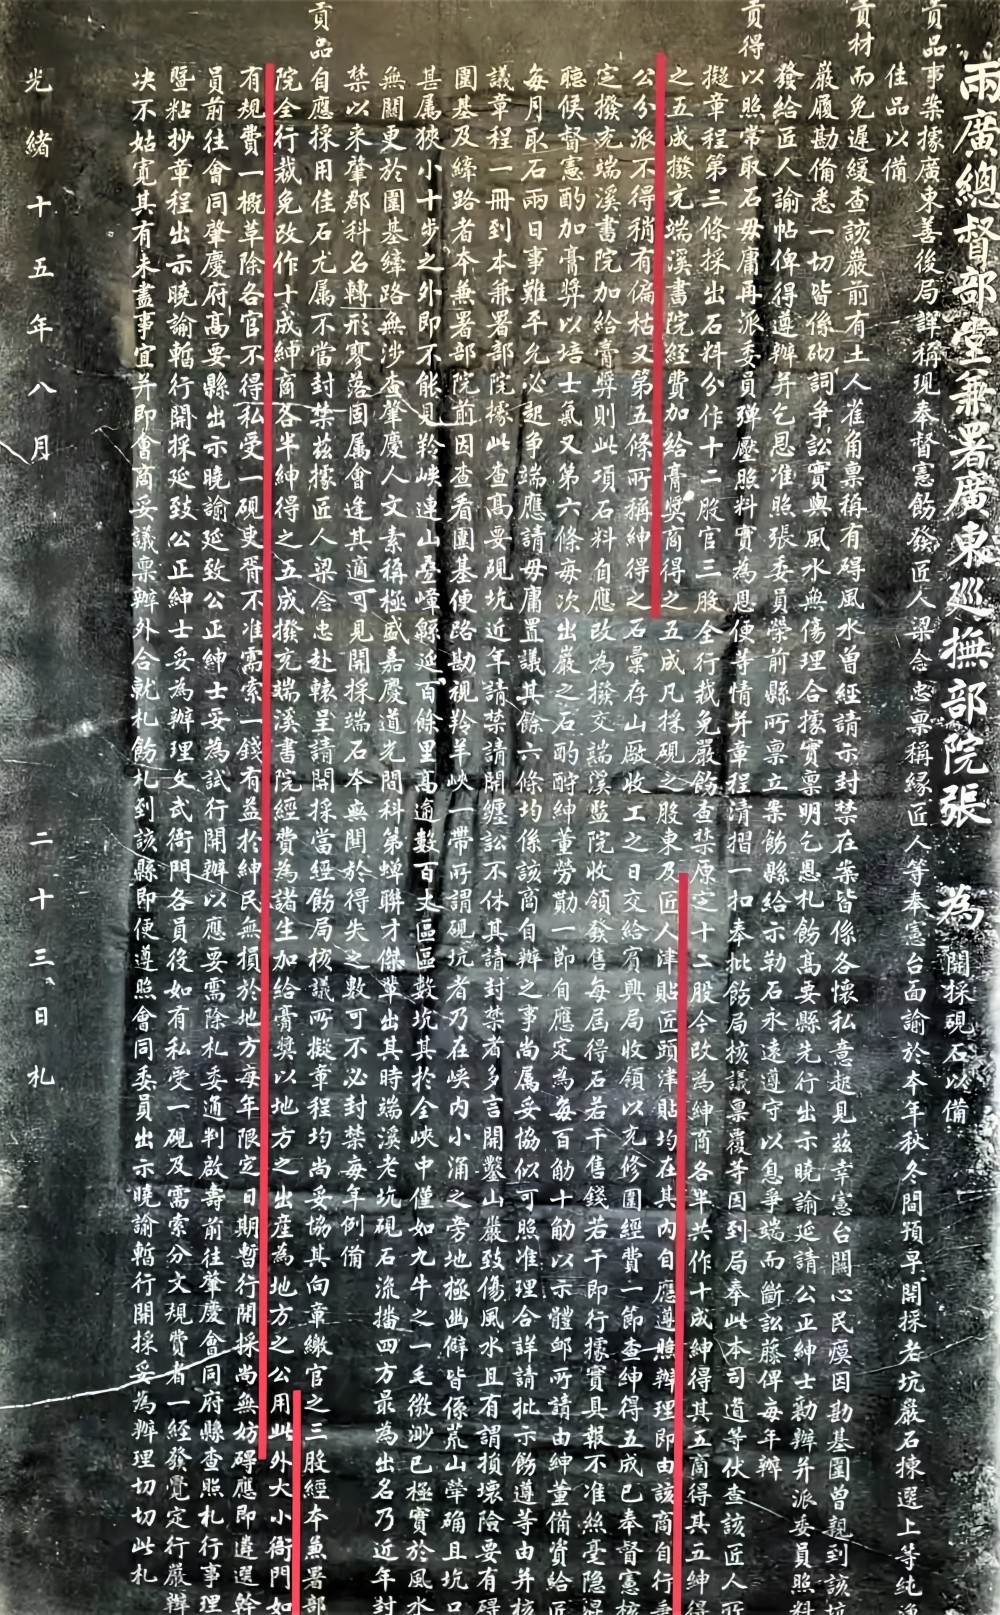 兩廣總督部堂兼署廣東巡撫部院張 為 開採硯石以備
貢品事案據廣東善後局詳稱現奉督憲飭發匠人梁念忠稟稱緣匠人等奉憲台面諭於本年秋冬間預早開採老坑巖石揀選上等純淨
佳品以備
貢材而免遲緩查該巖前有土人雀角稟稱有碍風水曾經請示封禁在案皆係各懷私意起見茲幸憲台關心民瘼因勘基圍曾親到該坑
巖履勘備悉一切皆係砌詞爭訟實與風水無傷理合據實稟明乞恩札飭高要縣先行出示曉諭延請公正紳士勸辦并派委員照料
發給匠人諭帖俾得遵辦并乞恩准照張委員榮前縣所稟立案飭縣給示勒石永遠遵守以息爭端而斷訟藤俾每年辦
貢得以照常取石毋庸再派委員彈壓照料實為恩便等情并章程清摺一扣奉批飭局核議稟覆等因到局奉此本司道等伏查該匠人所
擬章程第三條採出石料分作十二股官三股全行裁免嚴飭查禁原定十二股今改為紳商各半共作十成紳得其五商得其五紳得
之五成撥充端溪書院經費加給膏獎商得之五成凡採硯之股東及匠人津貼匠頭津貼均在其內自應遵照辦理即由該商自行秉
公分派不得稍有偏枯又第五條所稱紳得之石彙存山廠收工之日交給賓興局收領以充修圍經費一節查紳得五成已奉督憲核
定撥充端溪書院加給膏獎則此項石料自應改為撥交端溪監院收領發售每屆得石若干售錢若干即行據實具報不准絲毫隱混
聽候督憲酌加膏獎以培士氣又第六條每次出巖之石酌酬紳董勞勩一節自應定為每百觔十觔以示體卹所請由紳董備資給匠
每月取石兩日事難平允必起爭端應請毋庸置議其餘六條均係該商自辦之事尚屬妥協似可照准理合詳請批示飭遵等由并核
議章程一冊到本兼署部院據此查高要硯坑近年請禁請開纏訟不休其請封禁者多言開鑿山巖致傷風水且有謂損壞險要有碍
圍基及縴路者本兼署部院前因查看圍基便路勘視羚羊峽一帶所謂硯坑者乃在峽內小涌之旁地極幽僻皆係荒山犖确且坑口
甚屬狹小十步之外即不能見羚峽連山叠嶂綿延百餘里高逾數百丈區區數坑其於全峽中僅如九牛之一毛微渺已極實於風水
無關更於圍基縴路無涉查肇慶人文素稱極盛嘉慶道光間科第蟬聯才傑輩出其時端溪老坑硯石流播四方最為出名乃近年封
禁以來肇郡科名轉形寥落固屬會逢其適可見開採端石本無關於得失之數可不必封禁每年例備
貢品自應採用佳石尤屬不當封禁茲據匠人梁念忠赴轅呈請開採當經飭局核議所擬章程均尚妥協其向章繳官之三股經本兼署部
院全行裁免改作十成紳商各半紳得之五成撥充端溪書院經費為諸生加給膏獎以地方之出產為地方之公用此外大小衙門如
有規費一概革除各官不得私受一硯吏胥不准需索一錢有益於紳民無損於地方每年限定日期暫行開採尚無妨碍應即遴選幹
員前往會同肇慶府高要縣出示曉諭延致公正紳士妥為試行開辦以應要需除札委通判啟壽前往肇慶會同府縣查照札行事理
暨粘抄章程出示曉諭暫行開採延致公正紳士妥為辦理文武衙門各員役如有私受一硯及需索分文規費者一經發覺定行嚴辦
決不姑寬其有未盡事宜并即會商妥議稟辦外合就札飭札到該縣即便遵照會同委員出示曉諭暫行開採妥為辦理切切此札
光緒十五年八月 二十三日札